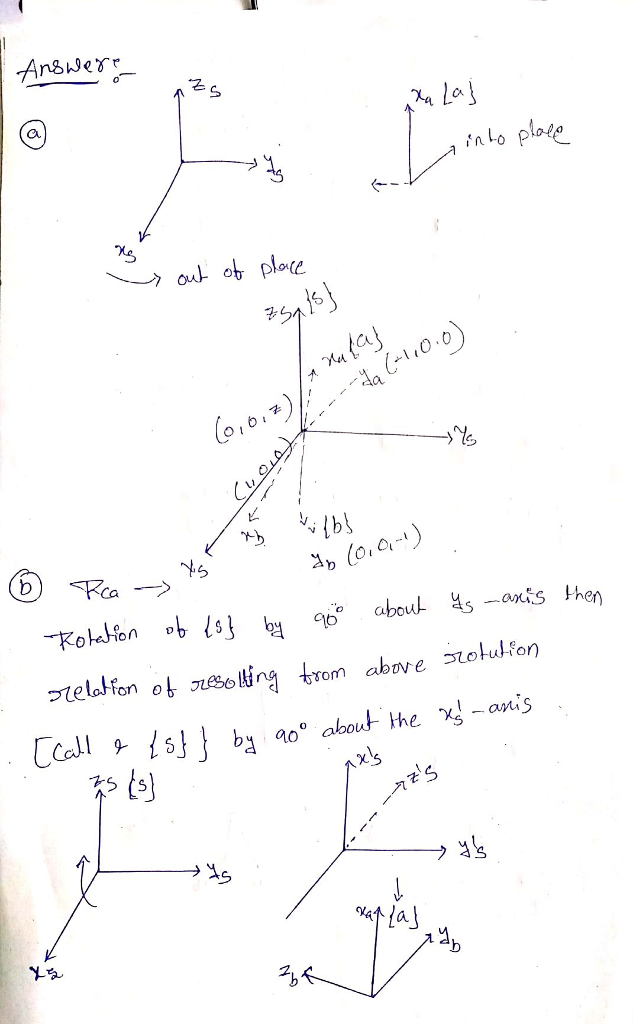 Answer:-
(a)
zs
ys
xs
xa {a}
into place
out of place
zs {s}
xa {a}
ya (-1,0.0)
(0,0,z)
ys
xs
xb
{b}
yb (0,0,-1)
(b) Rca →
Rotation of {s} by 90° about ys -axis then
relation of resolting from above rotution
[Call & {s} } by 90° about the xs' -axis
zs {s}
ys
x's
z's
y's
xa {a}
yb
zb